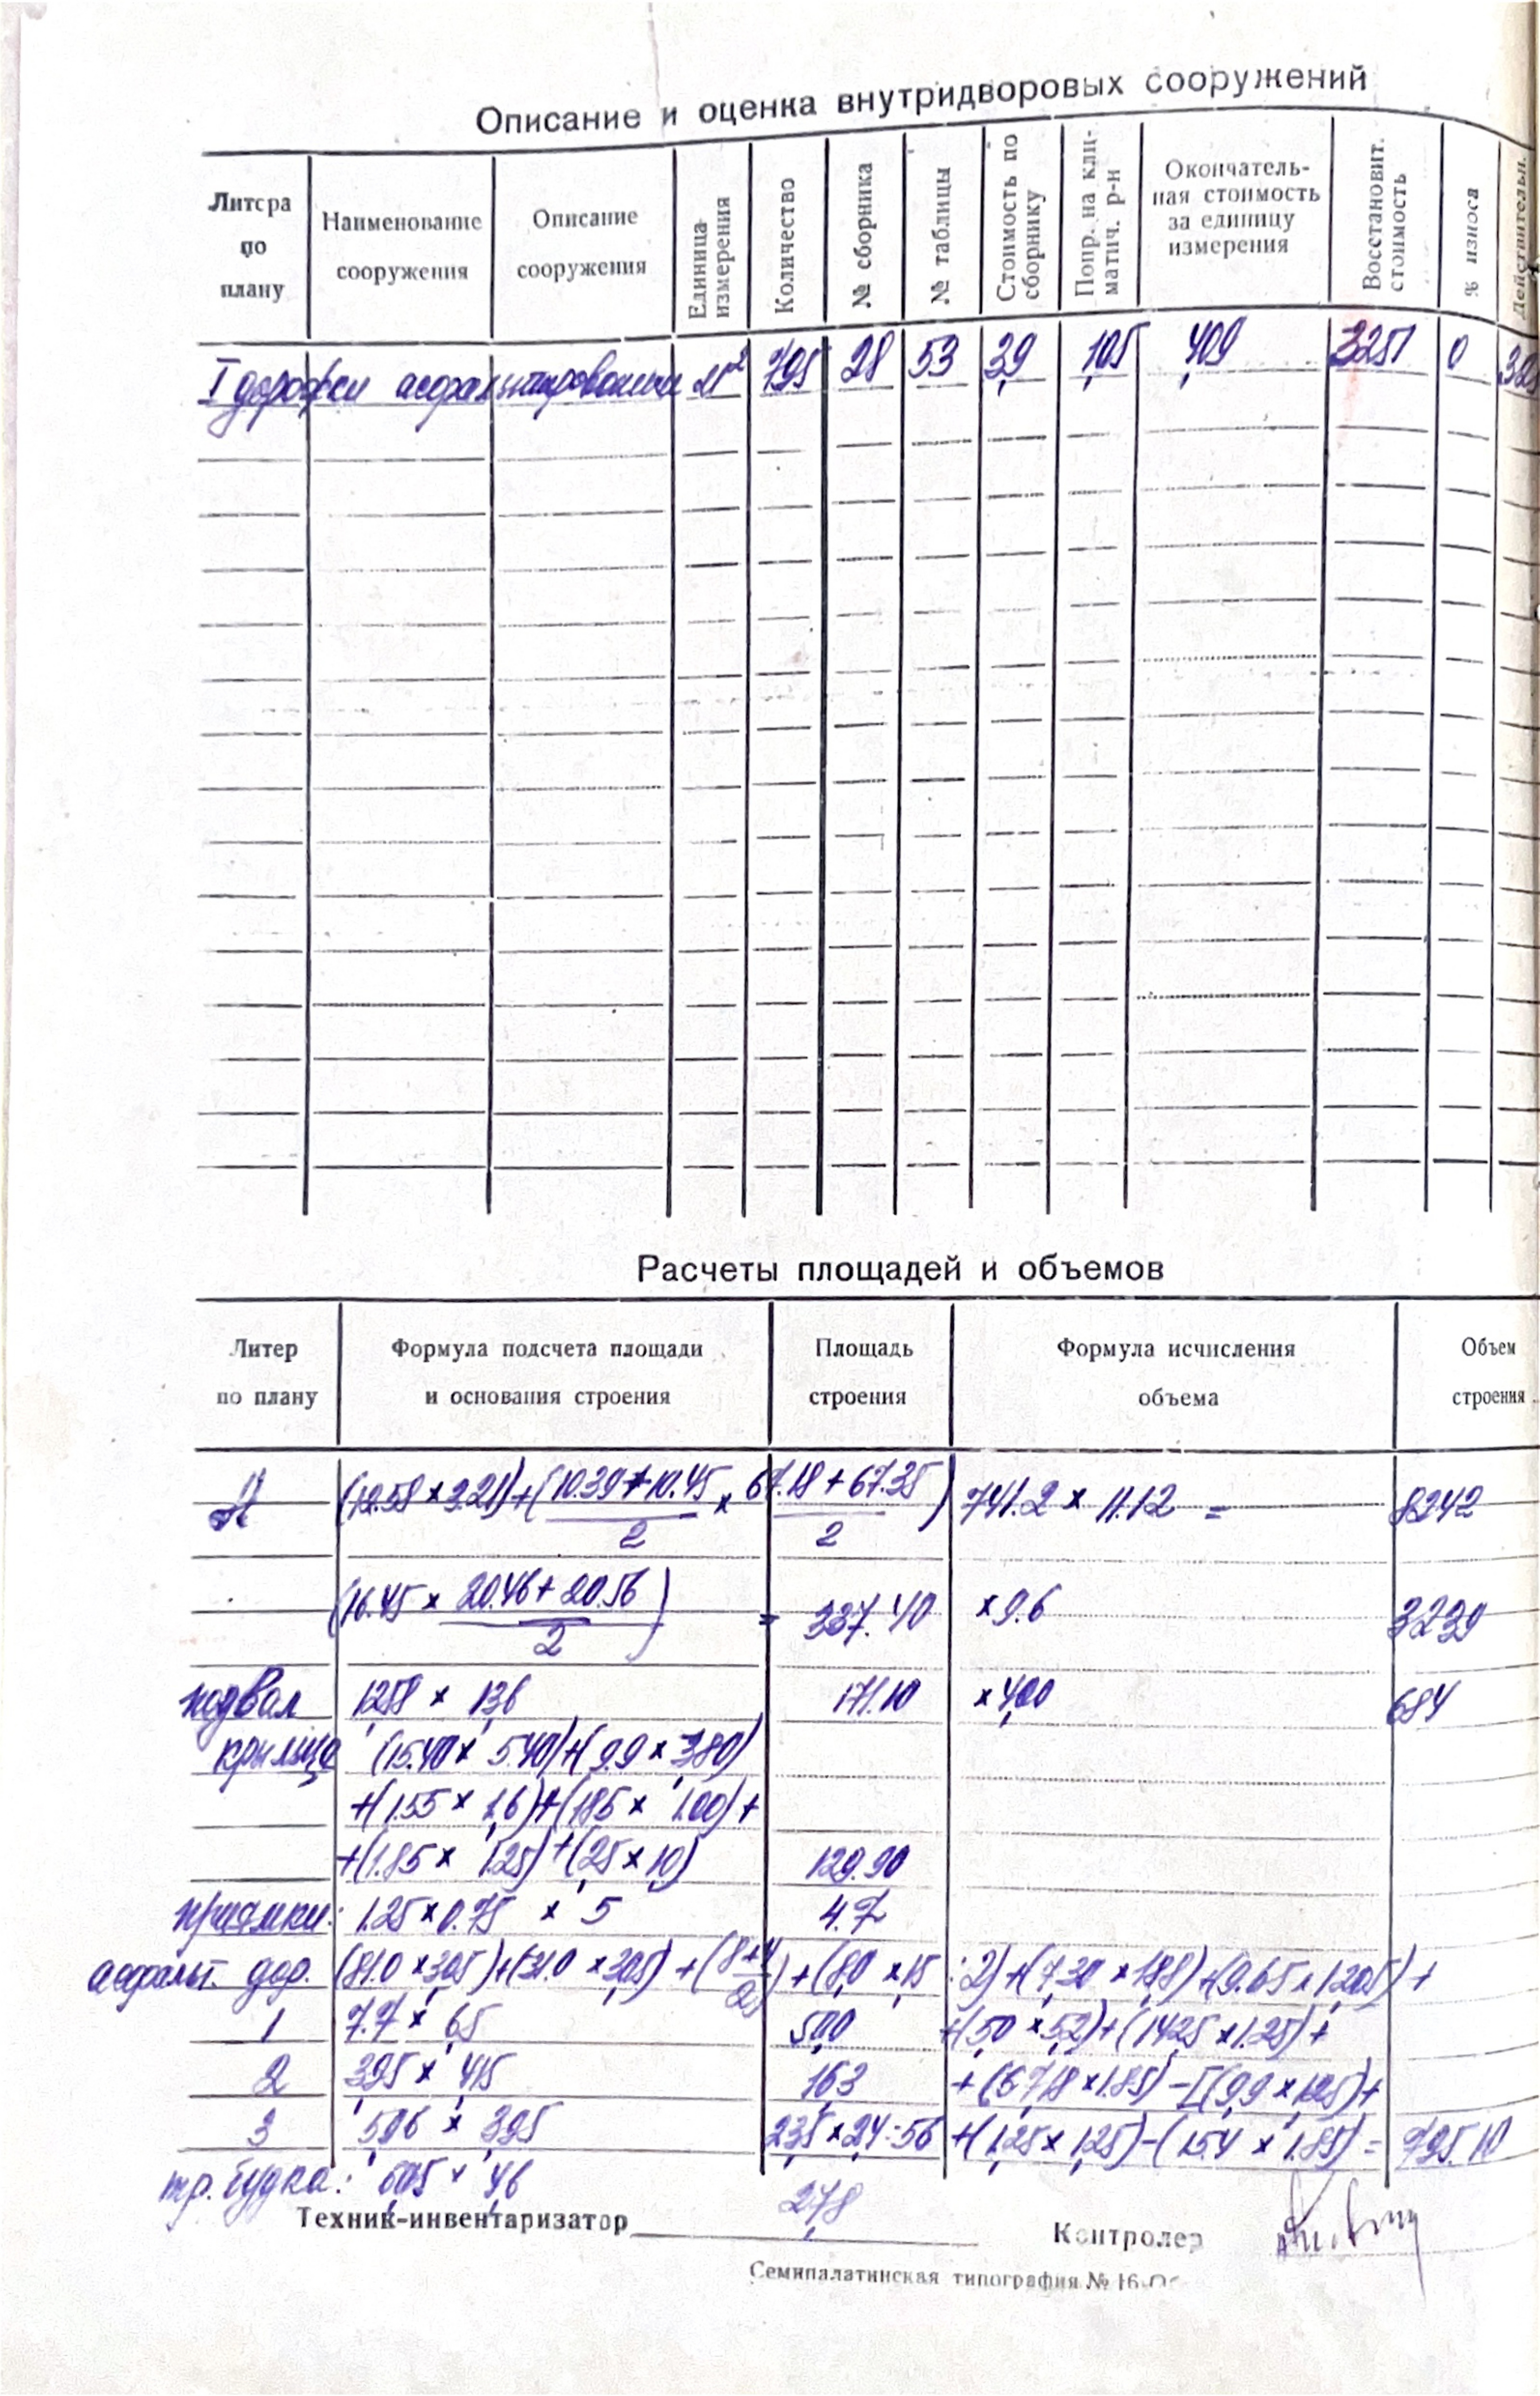 Описание и оценка внутридворовых сооружений
Литера по плану
Наименование сооружения
Описание сооружения
Единица измерения
Количество
№ сборника
№ таблицы
Стоимость по сборнику
Попр. на кли-матич. р-н
Окончатель-ная стоимость за единицу измерения
Восстановит. стоимость
% износа
Действительн.
I дорожки асфальтированные м² 795 28 53 3,9 1,05 4,09 3251 0
Расчеты площадей и объемов
Литер по плану
Формула подсчета площади и основания строения
Площадь строения
Формула исчисления объема
Объем строения
А (12.58 × 3.21) + (10.39 + 10.45 / 2 × 67.18 + 67.35 / 2) 741.2 × 11.12 = 8242
(16.45 × 20.46 + 20.56 / 2) = 337.40 × 9.6 3239
подвал 12,58 × 13,6 171.10 × 4,00 684
крыльцо (15.40 × 5.40) + (9.9 × 3,80)
+ (1.55 × 1,6) + (1,85 × 1.00) +
+ (1.85 × 1,25) + (2,5 × 1,0) 129.90
приямки: 1.25 × 0.75 × 5 4.7
асфальт. дор. (81.0 × 3,05) + (31.0 × 3,05) + (8 + 4 / 2) + (8,0 × 1,5 : 2) + (7,30 × 1,88) + (9.65 × 1,205) +
1 7.7 × 6,5 50,0 + (5,0 × 5,2) + (14,25 × 1.25) +
2 3,95 × 4,15 16,3 + (67,18 × 1.85) - [(9,9 × 1,25) +
3 5,96 × 3,95 23,5 × 2,4 = 56 + (1,25 × 1,25) - (15.4 × 1.85) = 795.10
тр. будка: 6,05 × 4,6 27,8
Техник-инвентаризатор
Контролер
Семипалатинская типография № 16